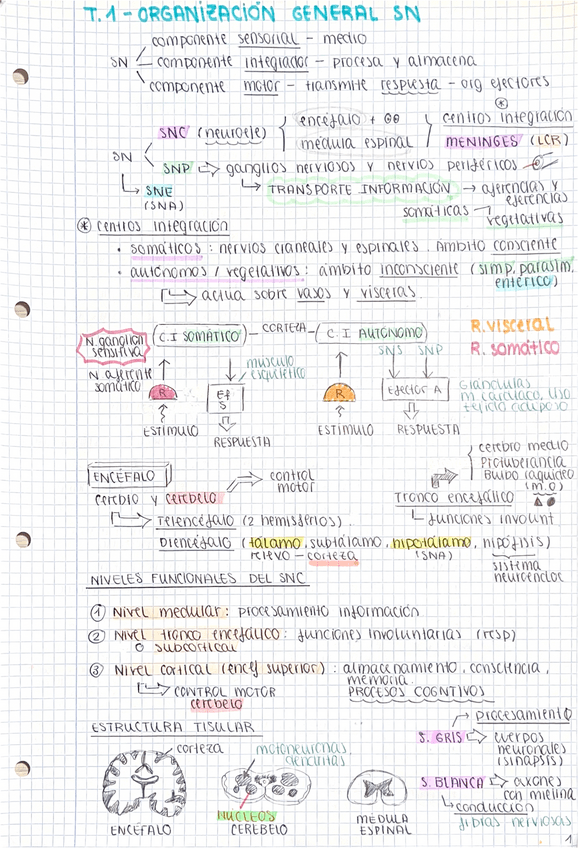 T.1 - ORGANIZACIÓN GENERAL SN
componente sensorial - medio
SN componente integrador - procesa y almacena
componente motor - transmite respuesta - org efectores
SNC (neuroeje) encéfalo + médula espinal centros integración
MENINGES (LCR)
SN
SNP ⇨ ganglios nerviosos y nervios periféricos
SNE (SNA)
TRANSPORTE INFORMACIÓN → aferencias y eferencias
somáticas vegetativas
* centros integración
• somáticos: nervios craneales y espinales. Ámbito consciente
• autónomos / vegetativos: ámbito inconsciente (simp, parasim, entérico)
actúa sobre vasos y vísceras.
N. ganglion sensitiva
C.I SOMÁTICO - CORTEZA - C.I AUTÓNOMO
R. visceral
R. somático
N aferente somático
músculo esquelético
SNS SNP
R
Ef S
R
Efector A
Glándulas
m cardiaco, liso
tejido adiposo
ESTÍMULO RESPUESTA ESTÍMULO RESPUESTA
ENCÉFALO
cerebro y cerebelo
control motor
cerebro medio
Protuberancia
Bulbo raquídeo (m.o)
Tronco encefálico
funciones involunt
Telencéfalo (2 hemisferios).
Diencéfalo (tálamo, subtálamo, hipotálamo, hipófisis)
relevo - corteza (SNA)
sistema neuroendoc
NIVELES FUNCIONALES DEL SNC
① Nivel medular: procesamiento información
② Nivel tronco encefálico: funciones involuntarias (resp)
o subcortical
③ Nivel cortical (encef superior): almacenamiento, consciencia, memoria.
CONTROL MOTOR
cerebelo
PROCESOS COGNTIVOS
ESTRUCTURA TISULAR
corteza
motoneuronas
dendritas
procesamiento
S. GRIS ⇨ cuerpos neuronales (sinapsis)
S. BLANCA ⇨ axones con mielina
conducción
fibras nerviosas
NÚCLEOS
ENCÉFALO
CEREBELO
MÉDULA ESPINAL
1